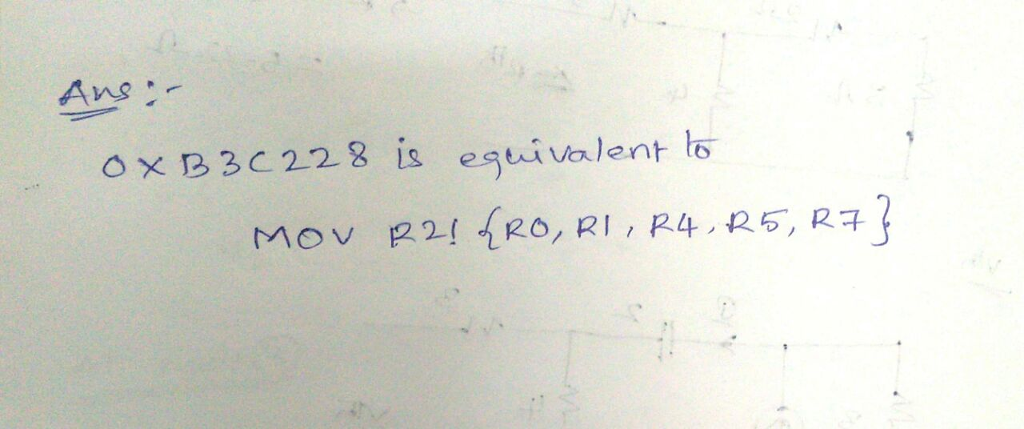 Ans :-
0XB3C228 is equivalent to
MOV R2! {R0, R1, R4, R5, R7}